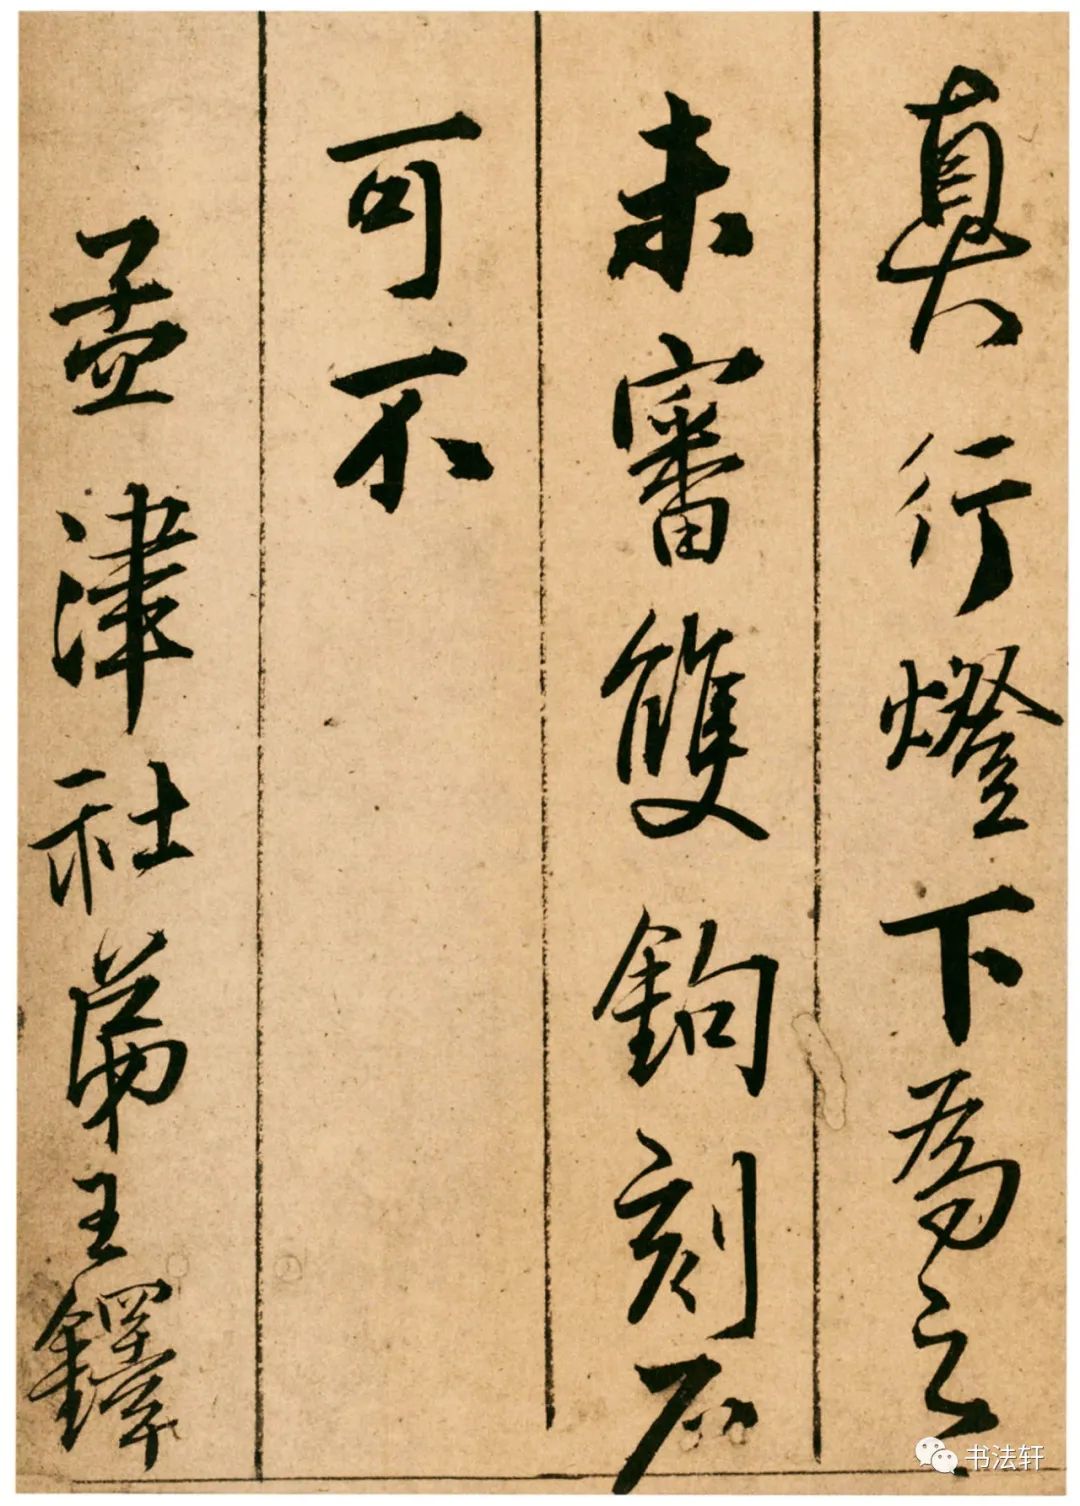 真行燈下爲之
未審雙鉤刻石
可不
孟津社弟王鐸
书法轩